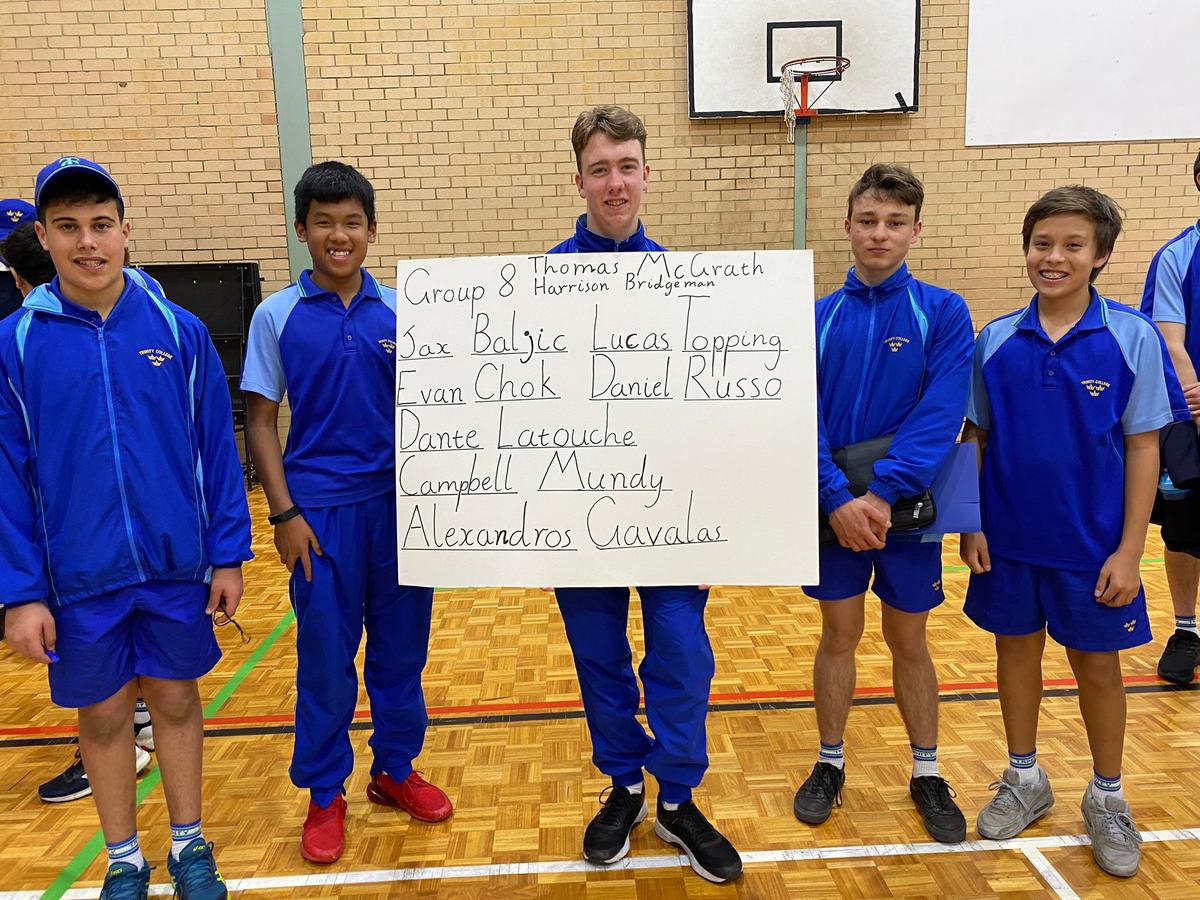 Group 8 Thomas McGrath
Harrison Bridgeman
Jax Baljic Lucas Topping
Evan Chok Daniel Russo
Dante Latouche
Campbell Mundy
Alexandros Gavalas
TRINITY COLLEGE
TRINITY COLLEGE